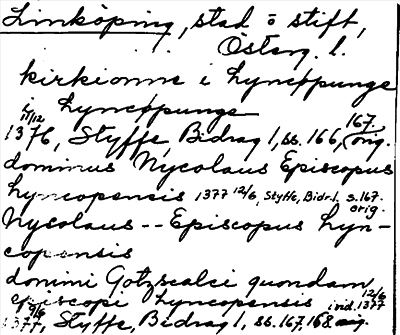 Linköping, stad o stift,
Österg. l.
kirkionne i Lyncøpunge
i Lyncøpunge
11/12 1376, Styffe, Bidrag 1, ss. 166, 167. orig.
dominus Nycolaus Episcopus
Lyncopensis 1377 12/6, Styffe, Bidr. 1, s. 167. orig.
Nycolaus -- Episcopus Lyn-
copensis
domini Gotzscalci quondam
episcopi Lyncopensis ind. 12/6 1377
9/6 1377, Styffe, Bidrag 1, ss. 167, 168. orig.